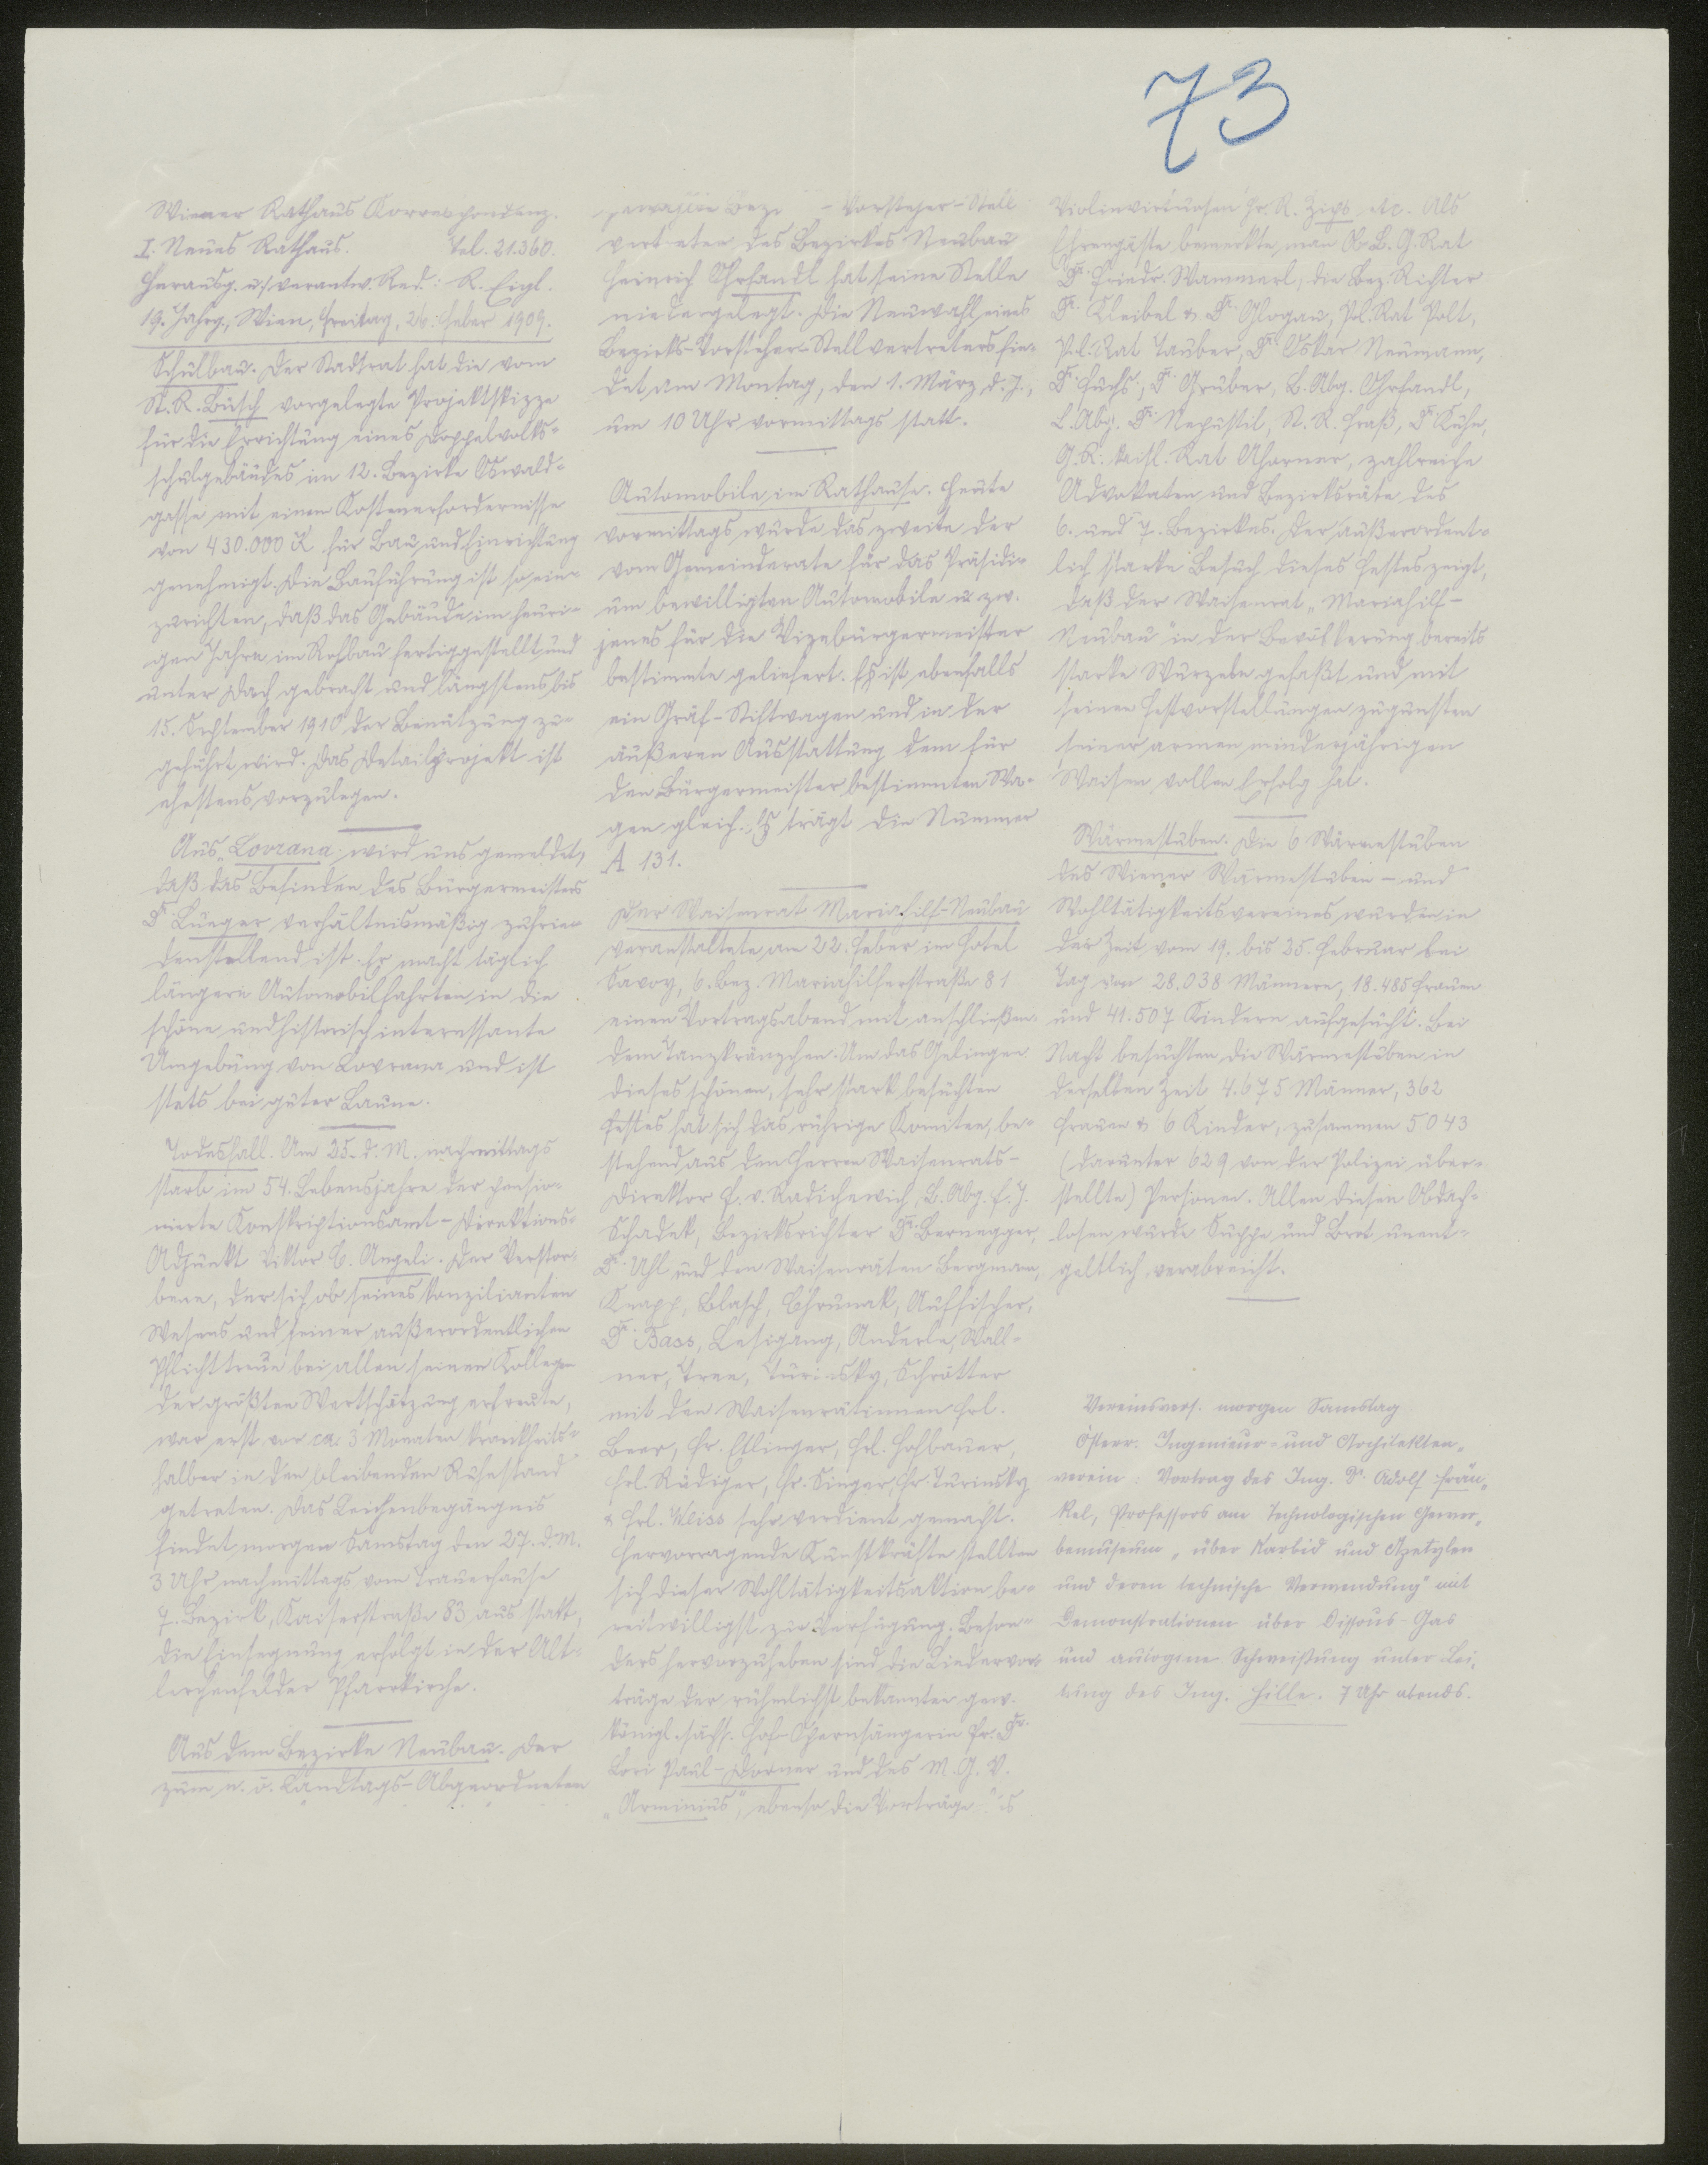 73
Wiener Rathaus Korrespondenz.
I. Neues Rathaus. Tel. 21.360.
Herausg. u. verantw. Red.: R. Eigl.
19. Jahrg., Wien, Freitag, 26. Feber 1909.
Schulbau. Der Stadtrat hat die vom
St. R. Büsch vorgelegte Projektskizze
für die Errichtung eines Doppelvolks-
schulgebäudes im 12. Bezirke Oswald-
gasse mit einem Kostenerfordernisse
von 430.000 K für Bau und Einrichtung
genehmigt. Die Bauführung ist so ein-
zurichten, daß das Gebäude im heuri-
gen Jahre im Rohbau fertiggestellt und
unter Dach gebracht und längstens bis
15. September 1910 der Benützung zu-
geführt wird. Das Detailprojekt ist
ehestens vorzulegen.
Aus Lovrana wird uns gemeldet,
daß das Befinden des Bürgermeisters
Dr. Lueger verhältnismäßig zufrie-
denstellend ist. Er macht täglich
längere Automobilfahrten in die
schöne und historisch interessante
Umgebung von Lovrana und ist
stets bei guter Laune.
Todesfall. Am 25. d. M. nachmittags
starb im 54. Lebensjahre der pensio-
nierte Konskriptionsamt-Direktions-
Adjunkt Viktor C. Angeli. Der Verstor-
bene, der sich ob seines konzilianten
Wesens und seiner außerordentlichen
Pflichttreue bei allen seinen Kollegen
der größten Wertschätzung erfreute,
war erst vor ca. 3 Monaten krankheits-
halber in den bleibenden Ruhestand
getreten. Das Leichenbegängnis
findet morgen Samstag den 27. d. M.
3 Uhr nachmittags vom Trauerhause
7. Bezirk, Kaiserstraße 83 aus statt,
die Einsegnung erfolgt in der Alt-
lerchenfelder Pfarrkirche.
Aus dem Bezirke Neubau. Der
zum n. ö. Landtags-Abgeordneten
gewählte Bezi - Vorsteher-Stell
vertreter des Bezirkes Neubau
Heinrich Ohrfandl hat seine Stelle
niedergelegt. Die Neuwahl eines
Bezirks-Vorsteher-Stellvertreters fin-
det am Montag, den 1. März d. J.,
um 10 Uhr vormittags statt.
Automobile im Rathause. Heute
vormittags wurde das zweite der
vom Gemeinderate für das Präsidi-
um bewilligten Automobile u. zw.
jenes für die Vizebürgermeister
bestimmte geliefert. Es ist ebenfalls
ein Gräf-Stiftwagen und in der
äußeren Ausstattung dem für
den Bürgermeister bestimmten Wa-
gen gleich. Es trägt die Nummer
A 131.
Der Waisenrat Mariahilf-Neubau
veranstaltete am 22. Feber im Hotel
Savoy, 6. Bez. Mariahilferstraße 81
einen Vortragsabend mit anschließen-
dem Tanzkränzchen. Um das Gelingen
dieses schönen, sehr stark besuchten
Festes hat sich das rührige Komitee, be-
stehend aus den Herren Waisenrats-
Direktor E. v. Radichevich, L. Abg. F. J.
Schadek, Bezirksrichter Dr. Bernegger,
Dr. Uhl und den Waisenräten Bergmann,
Knapp, Blasch, Chrunak, Auffischer,
Dr. Bass, Lesigang, Anderle, Wall-
ner, Tree, Turinsky, Schrötter
mit den Waisenrätinnen Frl.
Beer, Fr. Etlinger, Frl. Hofbauer,
Frl. Rüdiger, Fr. Singer, Fr. Turinsky
& Frl. Weiss sehr verdient gemacht.
Hervorragende Kunstkräfte stellten
sich dieser Wohltätigkeitsaktion be-
reitwilligst zur Verfügung. Beson-
ders hervorzuheben sind die Liedervor-
träge der rühmlichst bekannten gew.
königl. sächs. Hof-Opernsängerin Fr. Dr.
Lori Paul-Dorner und des M. G. V.
„Arminius", ebenso die Vorträge
Violinvirtuosen Hr. R. Zips etc. Als
Ehrengäste bemerkte man Ob. L. G. Rat
Dr. Friedr. Wammerl, die Bez. Richter
Dr. Kleibel & Dr. Glogau, Pol. Rat Polt,
Pol. Rat Tauber, Dr. Oskar Neumann,
Dr. Fuchs, Dr. Gruber, L. Abg. Ohrfandl,
L. Abg. Dr. Nepustil, St. R. Fraß, Dr. Kuhn,
G. R. kaisl. Rat Ahorner, zahlreiche
Advokaten und Bezirksräte des
6. und 7. Bezirkes. Der außerordent-
lich starke Besuch dieses Festes zeigt,
daß der Waisenrat „Mariahilf-
Neubau" in der Bevölkerung bereits
starke Wurzeln gefaßt und mit
seinen Festvorstellungen zugunsten
seiner armen minderjährigen
Waisen vollen Erfolg hat.
Wärmestuben. Die 6 Wärmestuben
des Wiener Wärmestuben- und
Wohltätigkeitsvereines wurden in
der Zeit vom 19. bis 25. Februar bei
Tag von 28.038 Männern, 18.485 Frauen
und 41.507 Kindern aufgesucht. Bei
Nacht besuchten die Wärmestuben in
derselben Zeit 4.675 Männer, 362
Frauen & 6 Kinder, zusammen 5043
(darunter 629 von der Polizei über-
stellte) Personen. Allen diesen Obdach-
losen wurde Suppe und Brot unent-
geltlich verabreicht.
Vereinsvers. morgen Samstag
Österr. Ingenieur- und Architekten-
verein: Vortrag des Ing. Dr. Adolf Frän-
kel, Professors am Technologischen Gewer-
bemuseum „über Karbid und Azetylen
und deren technische Verwendung" mit
Demonstrationen über Dissous-Gas
und autogene Schweißung unter Lei-
tung des Ing. Hille. 7 Uhr abends.